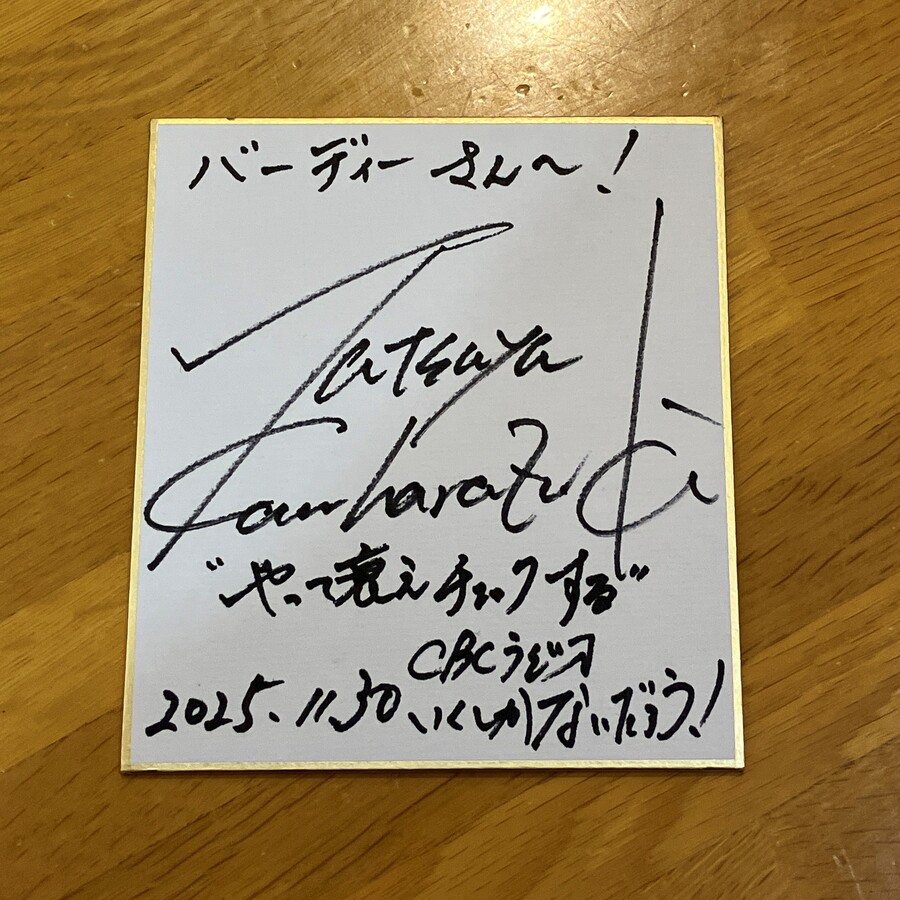 バーディーさん〜!
Tatsuya
KawharazuKi
"やって衰えチェックする"
CBCラジオ
2025.11.30 いくしかないだろう!